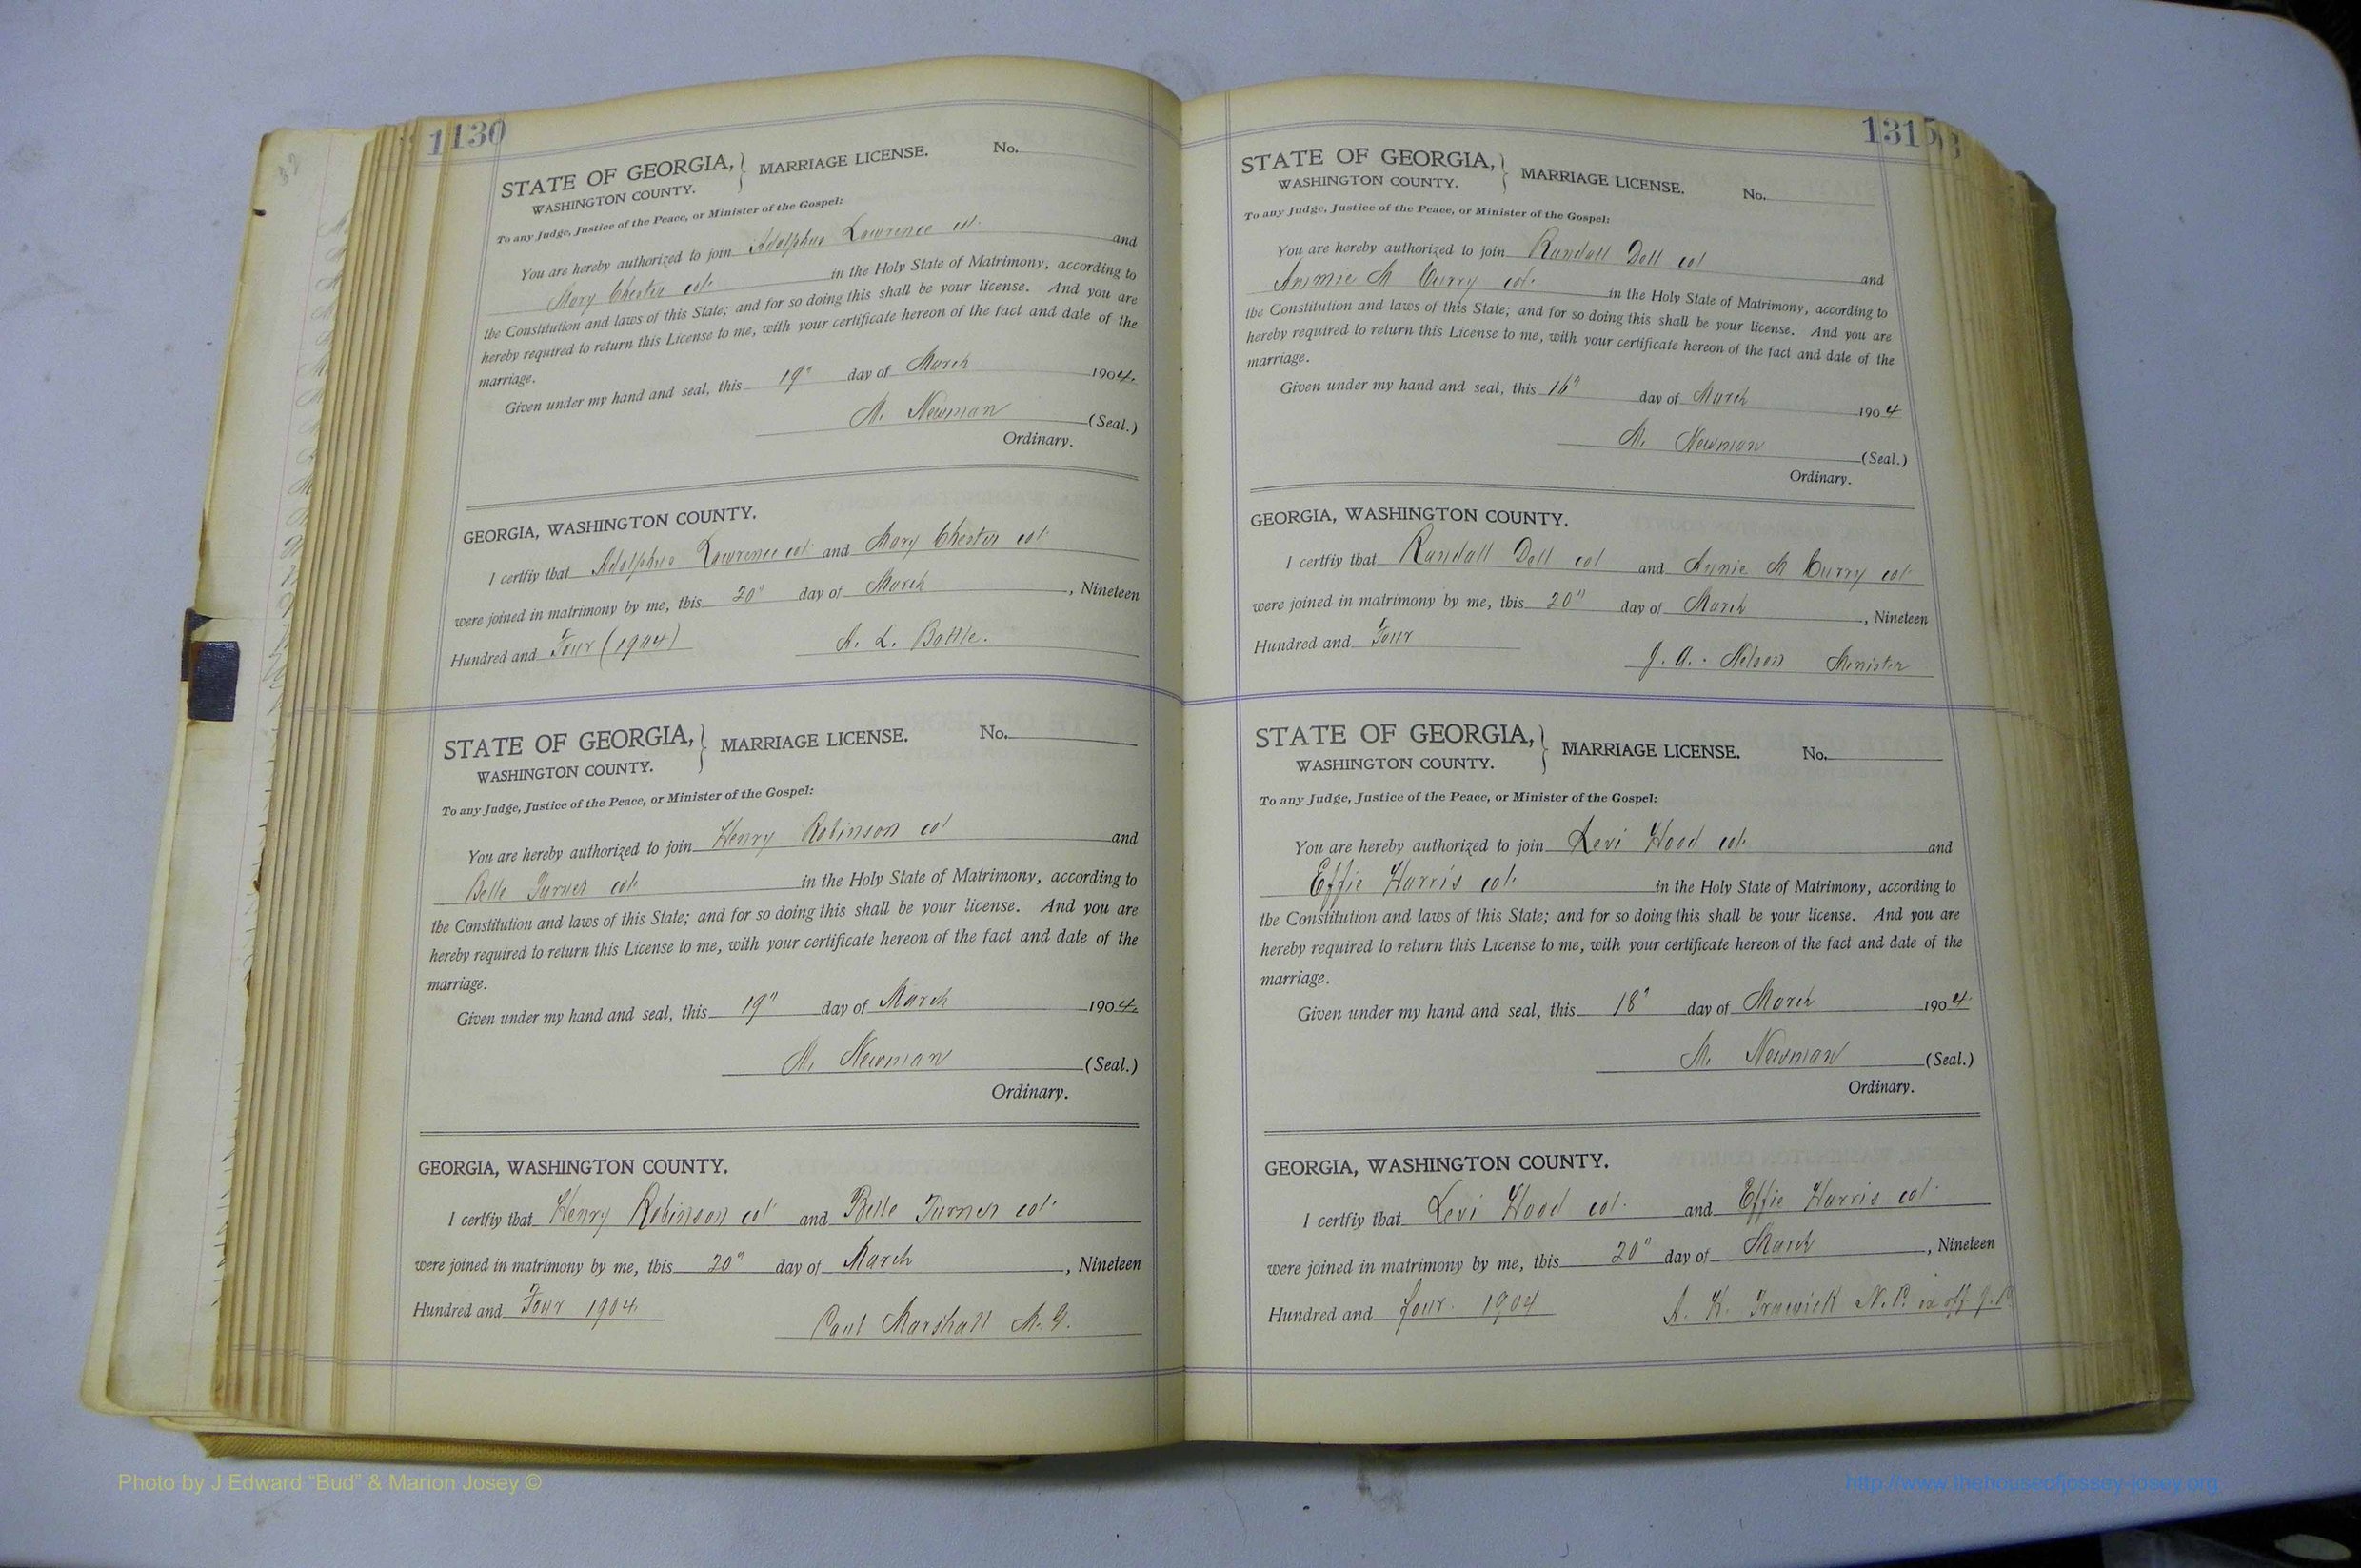 130
STATE OF GEORGIA, } MARRIAGE LICENSE. No.
WASHINGTON COUNTY.
To any Judge, Justice of the Peace, or Minister of the Gospel:
You are hereby authorized to join Adolphus Lawrence col. and
Mary Chester col. in the Holy State of Matrimony, according to
the Constitution and laws of this State; and for so doing this shall be your license. And you are
hereby required to return this License to me, with your certificate hereon of the fact and date of the
marriage.
Given under my hand and seal, this 19" day of March 1904.
M. Newman (Seal.)
Ordinary.
GEORGIA, WASHINGTON COUNTY.
I certfiy that Adolphus Lawrence col. and Mary Chester col.
were joined in matrimony by me, this 20" day of March, Nineteen
Hundred and Four (1904) A. L. Battle.
STATE OF GEORGIA, } MARRIAGE LICENSE. No.
WASHINGTON COUNTY.
To any Judge, Justice of the Peace, or Minister of the Gospel:
You are hereby authorized to join Henry Robinson col and
Belle Turner col. in the Holy State of Matrimony, according to
the Constitution and laws of this State; and for so doing this shall be your license. And you are
hereby required to return this License to me, with your certificate hereon of the fact and date of the
marriage.
Given under my hand and seal, this 19" day of March 1904.
M. Newman (Seal.)
Ordinary.
GEORGIA, WASHINGTON COUNTY.
I certfiy that Henry Robinson col and Belle Turner col.
were joined in matrimony by me, this 20" day of March, Nineteen
Hundred and Four 1904. Paul Marshall M. G.
131
STATE OF GEORGIA, } MARRIAGE LICENSE. No.
WASHINGTON COUNTY.
To any Judge, Justice of the Peace, or Minister of the Gospel:
You are hereby authorized to join Randall Dell col and
Annie M Curry col. in the Holy State of Matrimony, according to
the Constitution and laws of this State; and for so doing this shall be your license. And you are
hereby required to return this License to me, with your certificate hereon of the fact and date of the
marriage.
Given under my hand and seal, this 16" day of March 1904
M. Newman (Seal.)
Ordinary.
GEORGIA, WASHINGTON COUNTY.
I certfiy that Randall Dell col and Annie M Curry col
were joined in matrimony by me, this 20" day of March, Nineteen
Hundred and Four J. A. Nelson Minister
STATE OF GEORGIA, } MARRIAGE LICENSE. No.
WASHINGTON COUNTY.
To any Judge, Justice of the Peace, or Minister of the Gospel:
You are hereby authorized to join Levi Hood col. and
Effie Harris col. in the Holy State of Matrimony, according to
the Constitution and laws of this State; and for so doing this shall be your license. And you are
hereby required to return this License to me, with your certificate hereon of the fact and date of the
marriage.
Given under my hand and seal, this 18" day of March 1904
M. Newman (Seal.)
Ordinary.
GEORGIA, WASHINGTON COUNTY.
I certfiy that Levi Hood col. and Effie Harris col.
were joined in matrimony by me, this 20" day of March, Nineteen
Hundred and four. 1904 Trawick N. P. ex off J. P.
Photo by J Edward “Bud” & Marion Josey ©
http://www.thehouseofjossey-josey.org